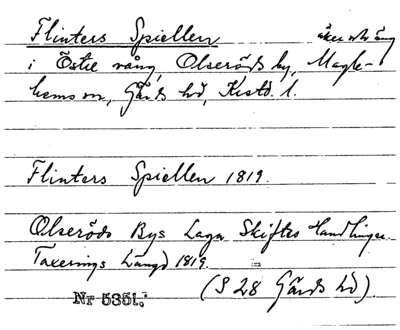 Flinters Spiellen åker och äng
i Östre vång, Olseröds by, Magle-
hems sn, Gärds hd, Kristd. l.
Flinters Spiellen 1819.
Olseröds Bys Laga Skiftes Handlingar.
Taxerings Längd 1819.
(S 28 Gärds hd).
Nr 5351.